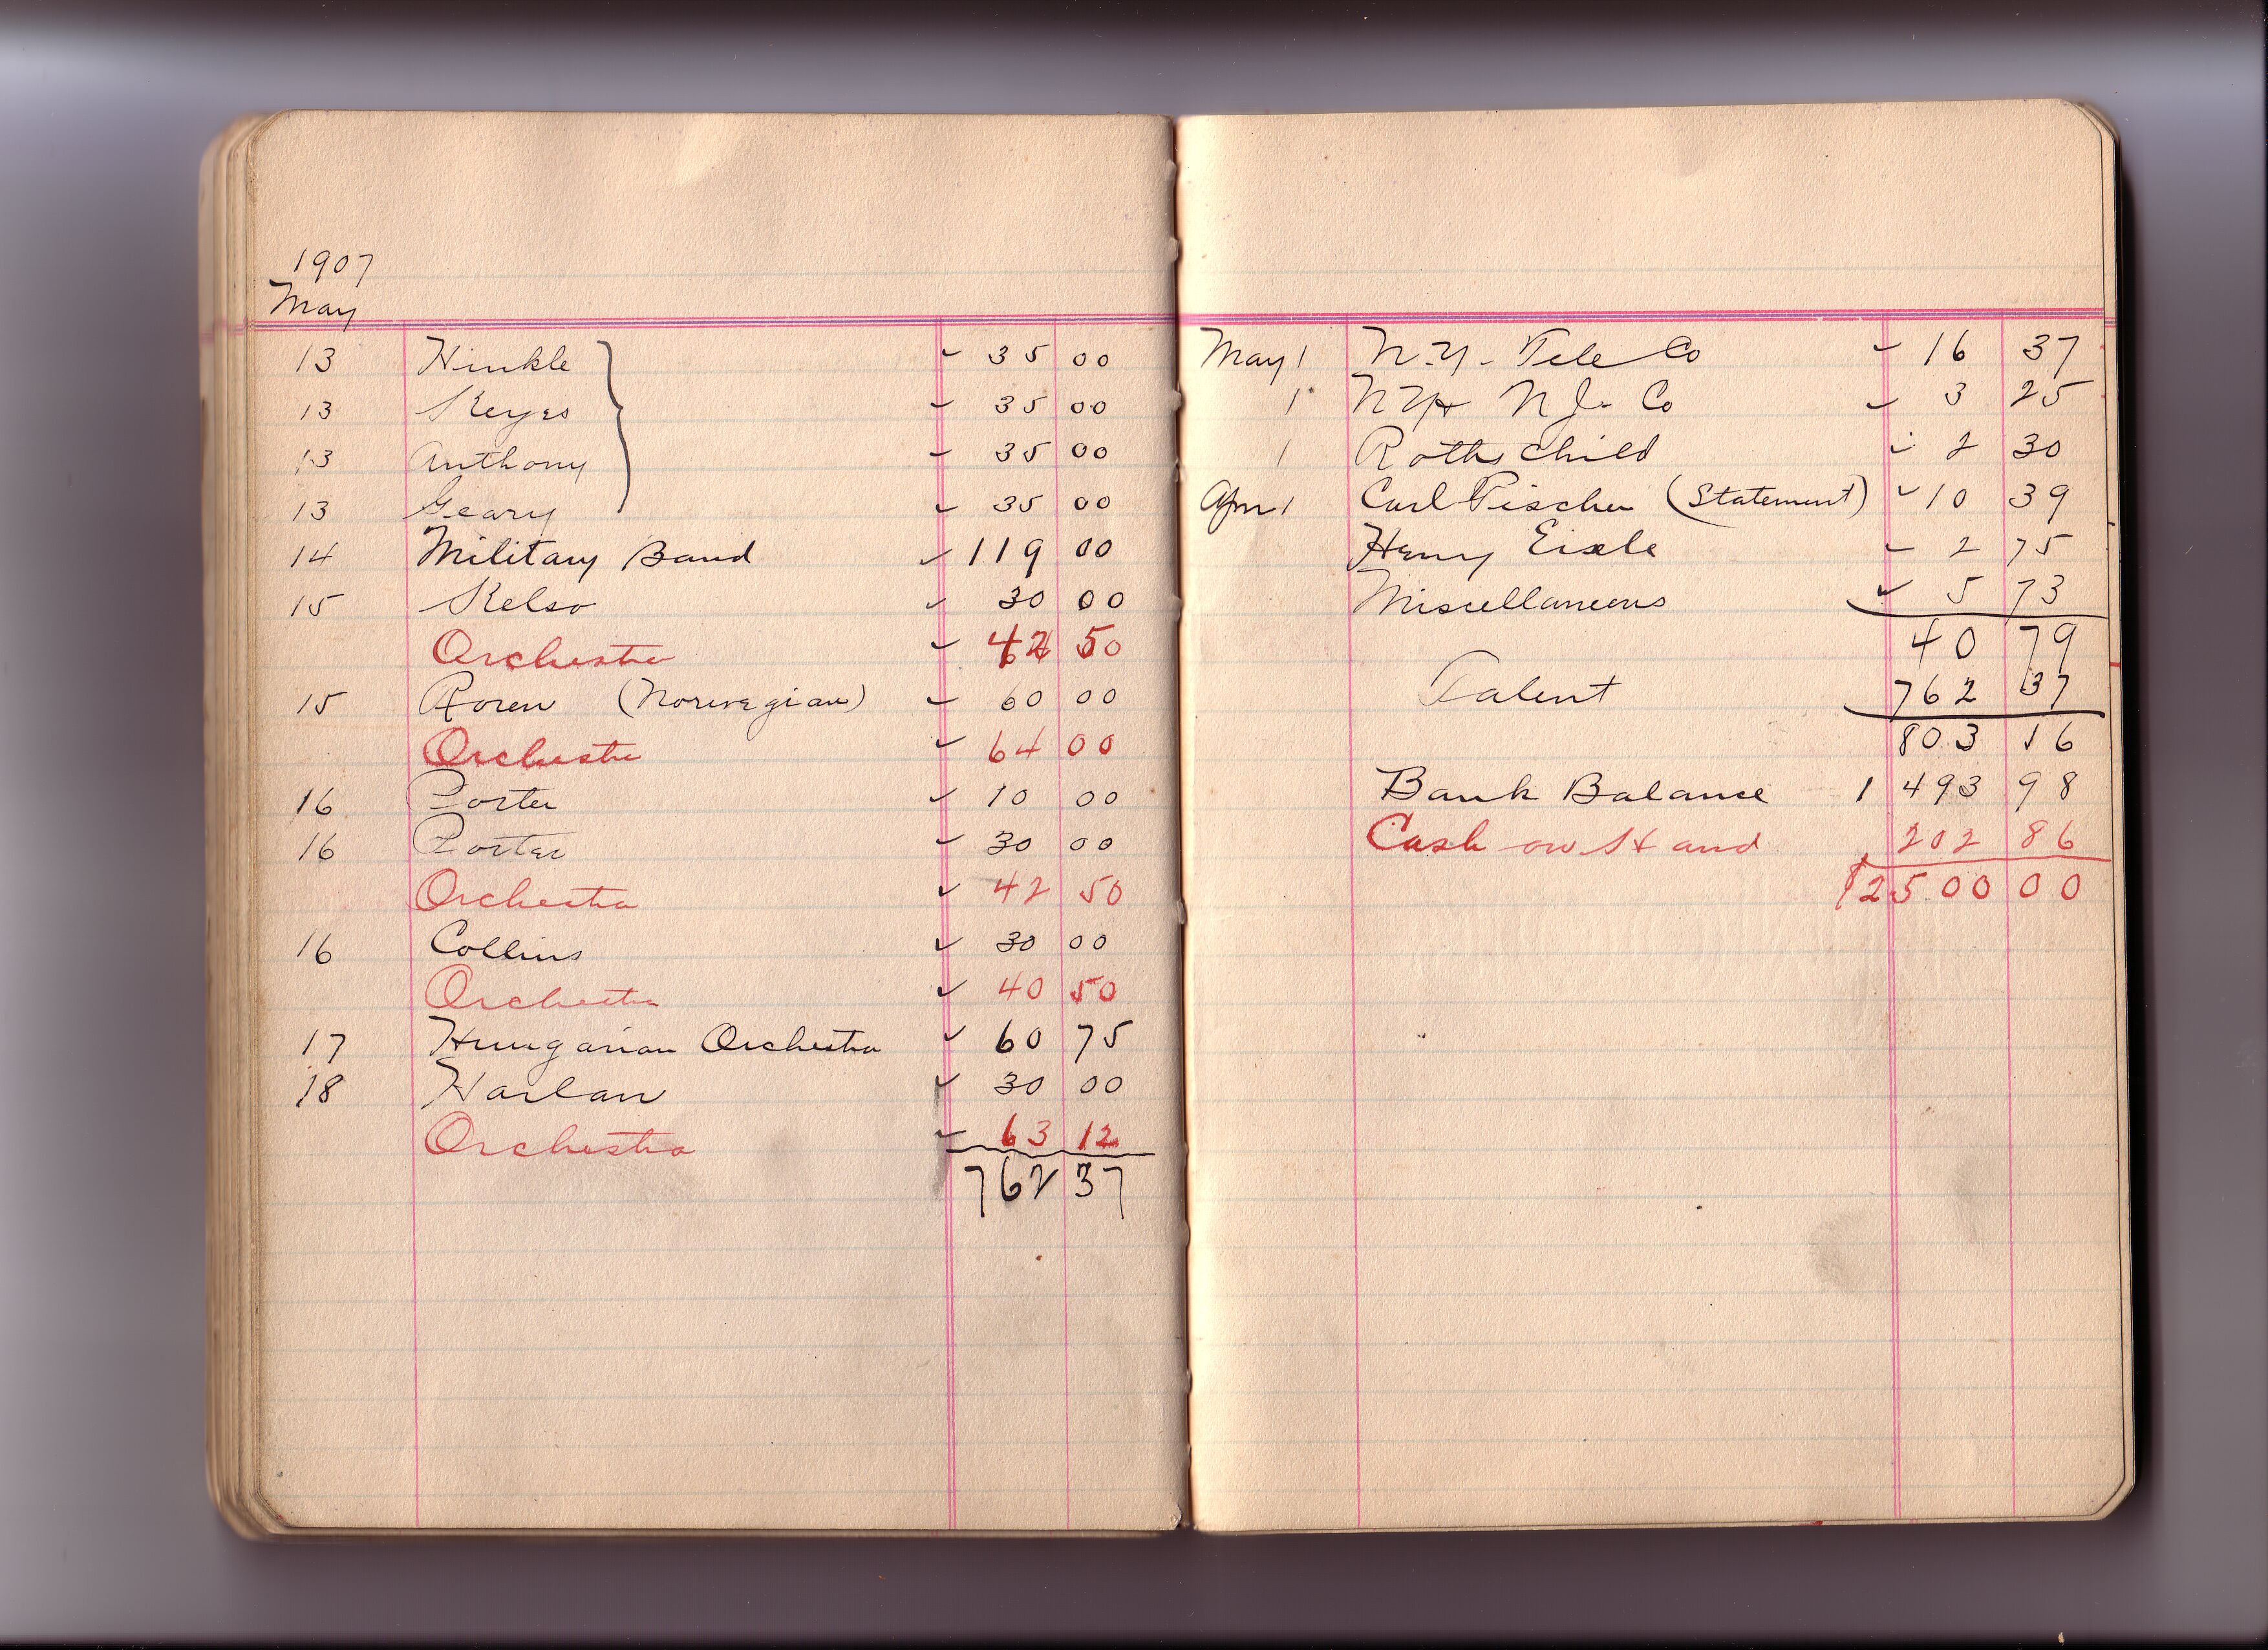 1907
May
13 Hinkle 35 00
13 Keyes 35 00
13 Anthony 35 00
13 Geary 35 00
14 Military Band 119 00
15 Kelso 30 00
Orchestra 42 50
15 Roren (Norwegian) 60 00
Orchestra 64 00
16 Porter 10 00
16 Porter 30 00
Orchestra 42 50
16 Collins 30 00
Orchestra 40 50
17 Hungarian Orchestra 60 75
18 Harlan 30 00
Orchestra 63 12
762 37
May 1 N.Y. Tele Co 16 37
1 NY & NJ. Co 3 25
1 Rothschild 2 30
Apr 1 Carl Fischer (Statement) 10 39
Henry Eisle 2 75
Miscellaneous 5 73
40 79
Talent 762 37
803 16
Bank Balance 1 493 98
Cash on Hand 202 86
$2500 00